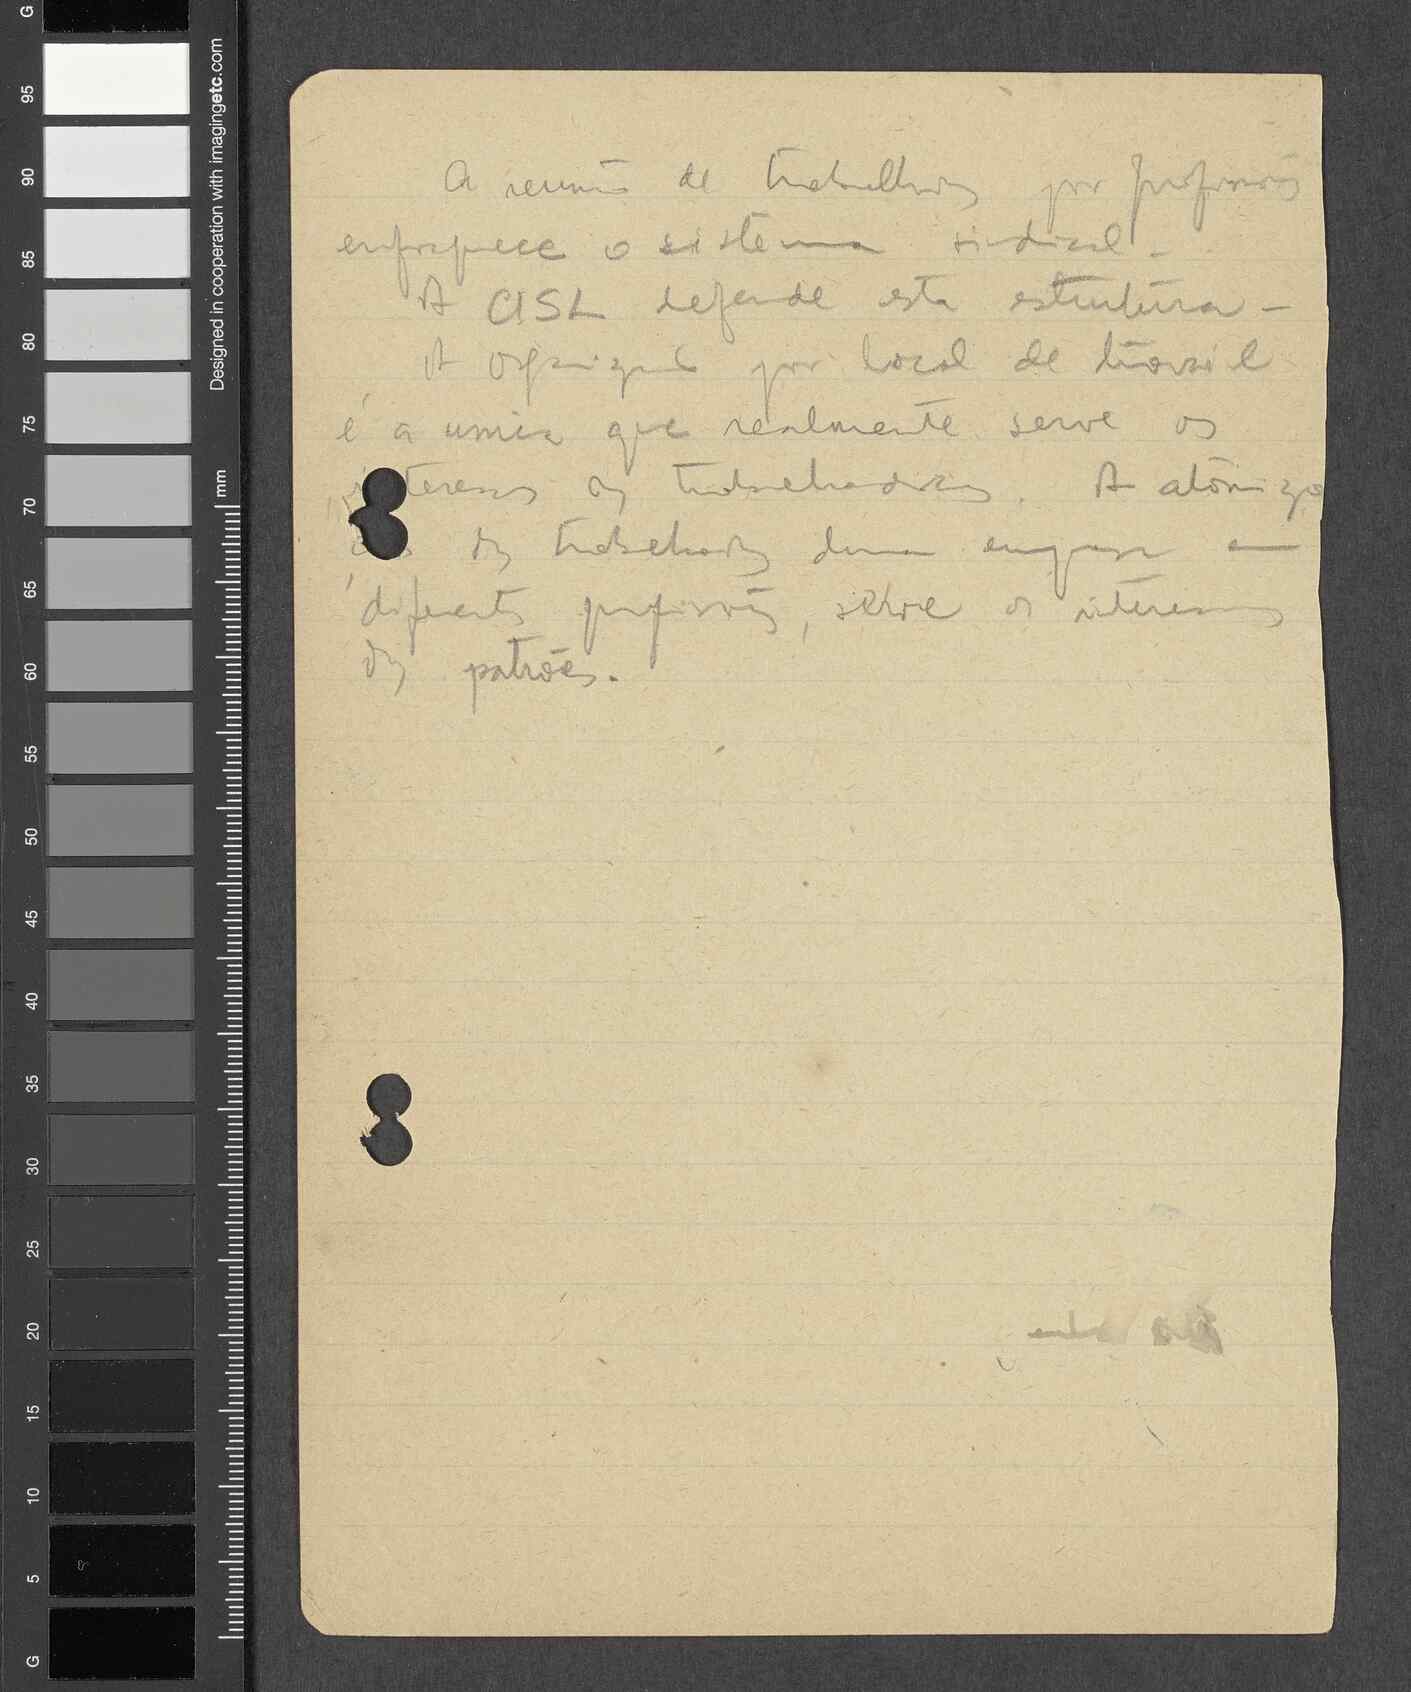 A reunião de trabalhadores por profissões
enfraquece o sistema sindical -
A CISL defende esta estrutura -
A organização por local de trabalho
é a unica que realmente serve os
interesses dos trabalhadores. A atomiza
ção dos trabalhadores duma empresa em
diferentes profissões, serve os interesses
dos patrões.
Designed in cooperation with imagingetc.com
mm
G
95
90
85
80
75
70
65
60
55
50
45
40
35
30
25
20
15
10
5
G